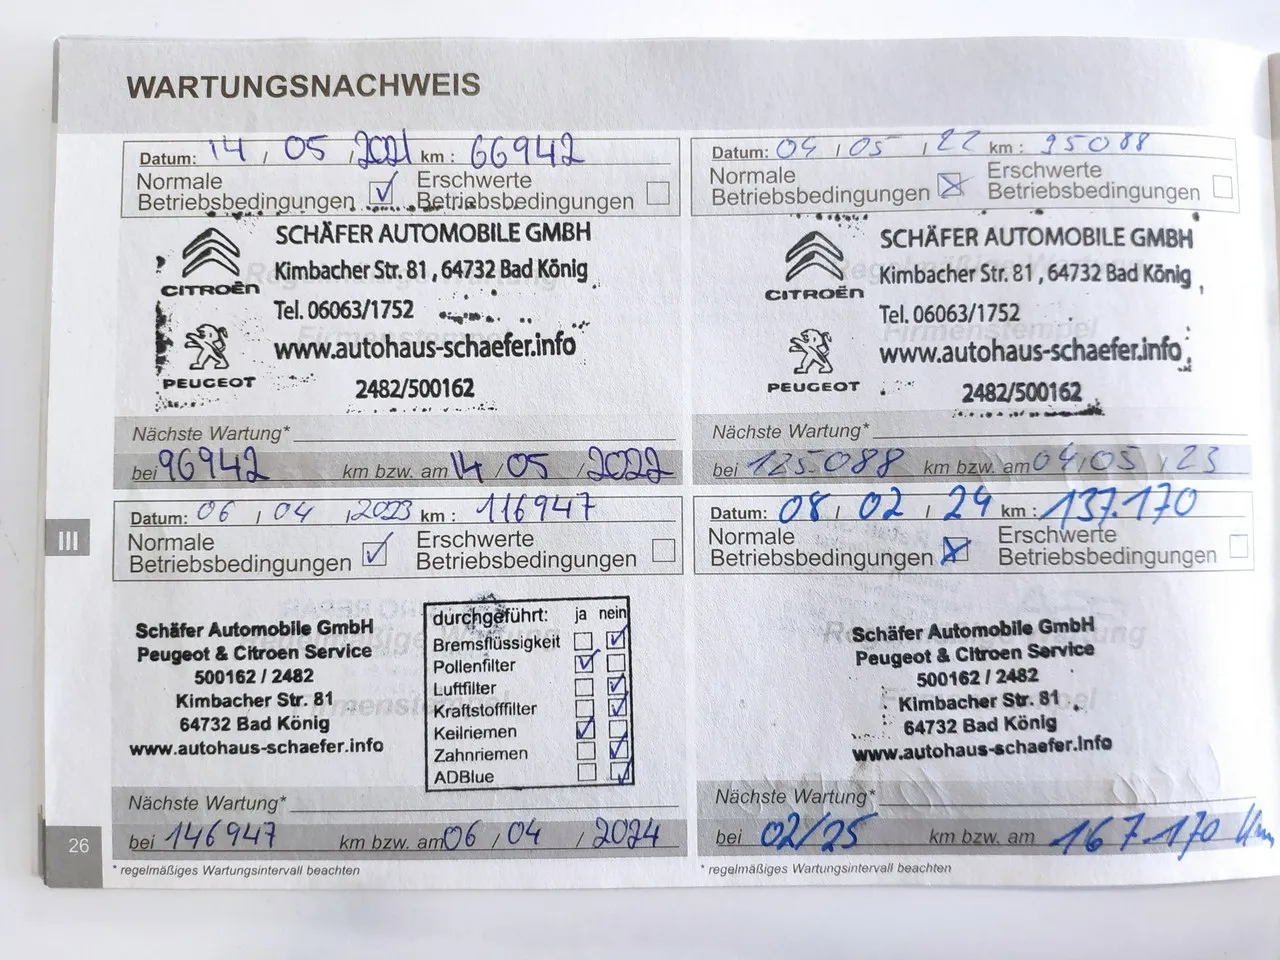 WARTUNGSNACHWEIS
Datum: 14 / 05 / 2021 km : 66942
Normale Betriebsbedingungen
Erschwerte Betriebsbedingungen
CITROËN
PEUGEOT
SCHÄFER AUTOMOBILE GMBH
Kimbacher Str. 81 , 64732 Bad König
Tel. 06063/1752
www.autohaus-schaefer.info
2482/500162
Nächste Wartung*
bei 96942 km bzw. am 14 / 05 / 2022
Datum: 04 / 05 / 22 km : 95088
Normale Betriebsbedingungen
Erschwerte Betriebsbedingungen
CITROËN
PEUGEOT
SCHÄFER AUTOMOBILE GMBH
Kimbacher Str. 81 , 64732 Bad König
Tel. 06063/1752
www.autohaus-schaefer.info
2482/500162
Nächste Wartung*
bei 125.088 km bzw. am 04 / 05 / 23
III
Datum: 06 / 04 / 2023 km : 116947
Normale Betriebsbedingungen
Erschwerte Betriebsbedingungen
Schäfer Automobile GmbH
Peugeot & Citroen Service
500162 / 2482
Kimbacher Str. 81
64732 Bad König
www.autohaus-schaefer.info
durchgeführt: ja nein
Bremsflüssigkeit
Pollenfilter
Luftfilter
Kraftstofffilter
Keilriemen
Zahnriemen
ADBlue
Nächste Wartung*
bei 146947 km bzw. am 06 / 04 / 2024
* regelmäßiges Wartungsintervall beachten
Datum: 08 / 02 / 24 km : 137.170
Normale Betriebsbedingungen
Erschwerte Betriebsbedingungen
Schäfer Automobile GmbH
Peugeot & Citroen Service
500162 / 2482
Kimbacher Str. 81
64732 Bad König
www.autohaus-schaefer.info
Nächste Wartung*
bei 02/25 km bzw. am 167.170 km
* regelmäßiges Wartungsintervall beachten
26